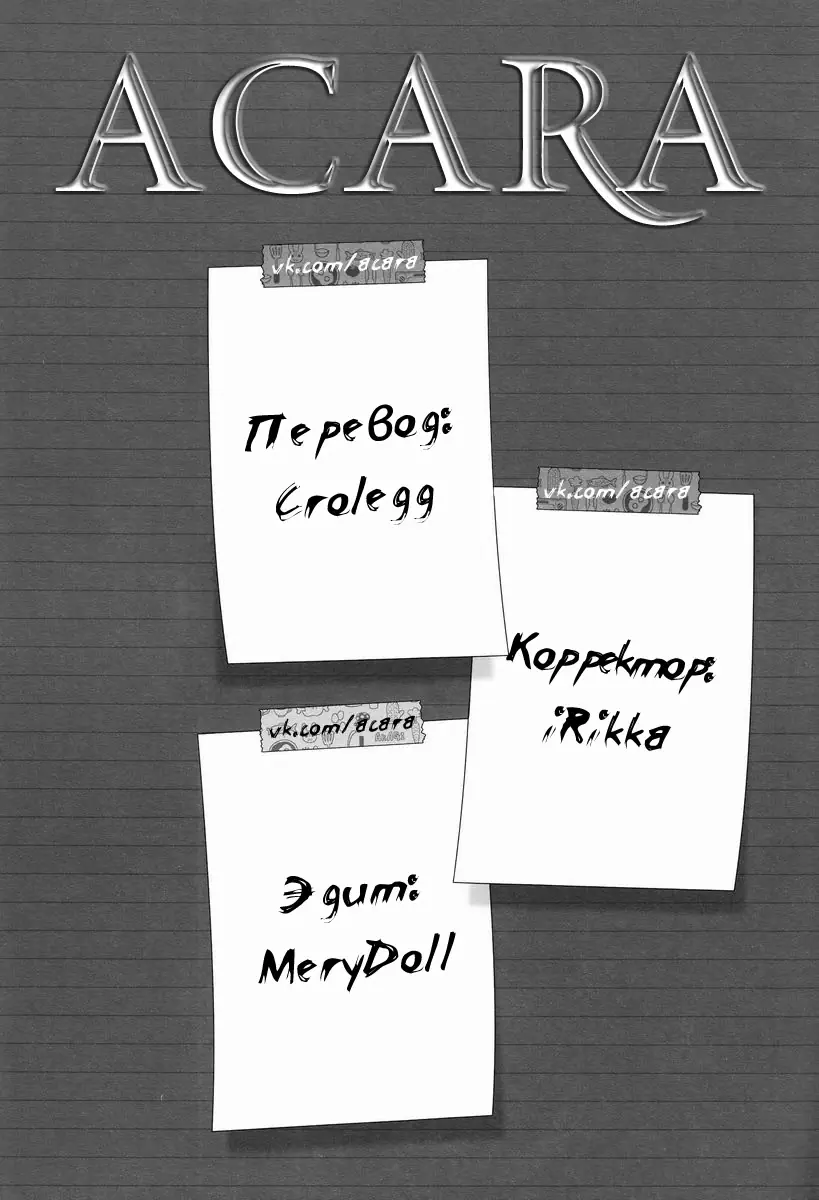 ACARA
vk.com/acara
Перевод:
Crolegg
vk.com/acara
Корректор:
iRikka
vk.com/acara
Эдит:
MeryDoll